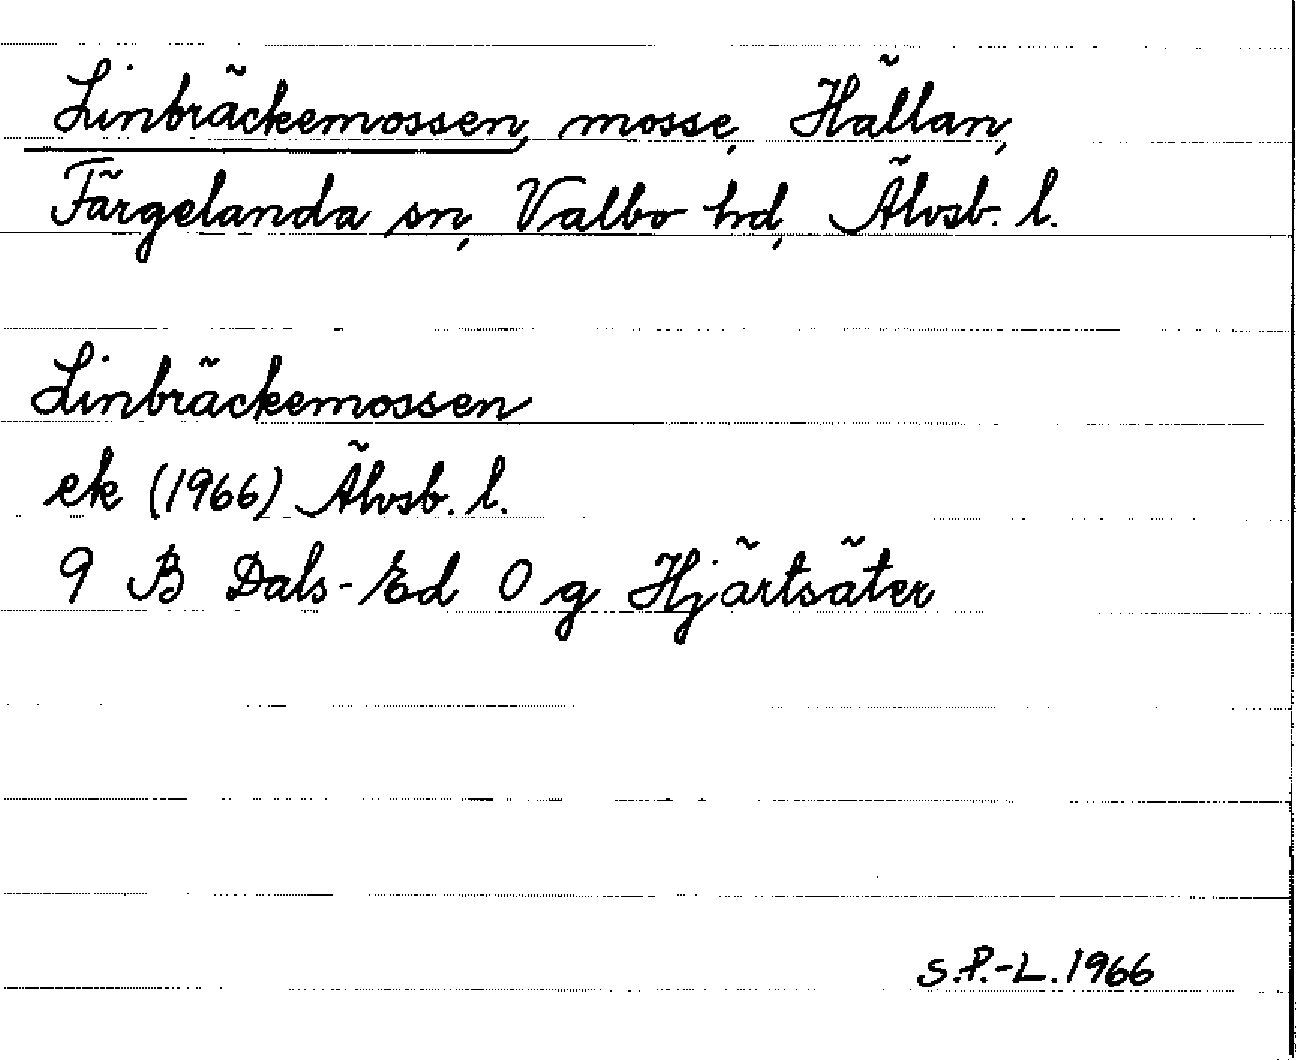 Linbräckemossen, mosse, Hällan,
Färgelanda sn, Valbo hd, Älvsb. l.
Linbräckemossen
ek (1966) Älvsb. l.
9 B Dals-Ed 0 g Hjärtsäter
S.P.-L. 1966